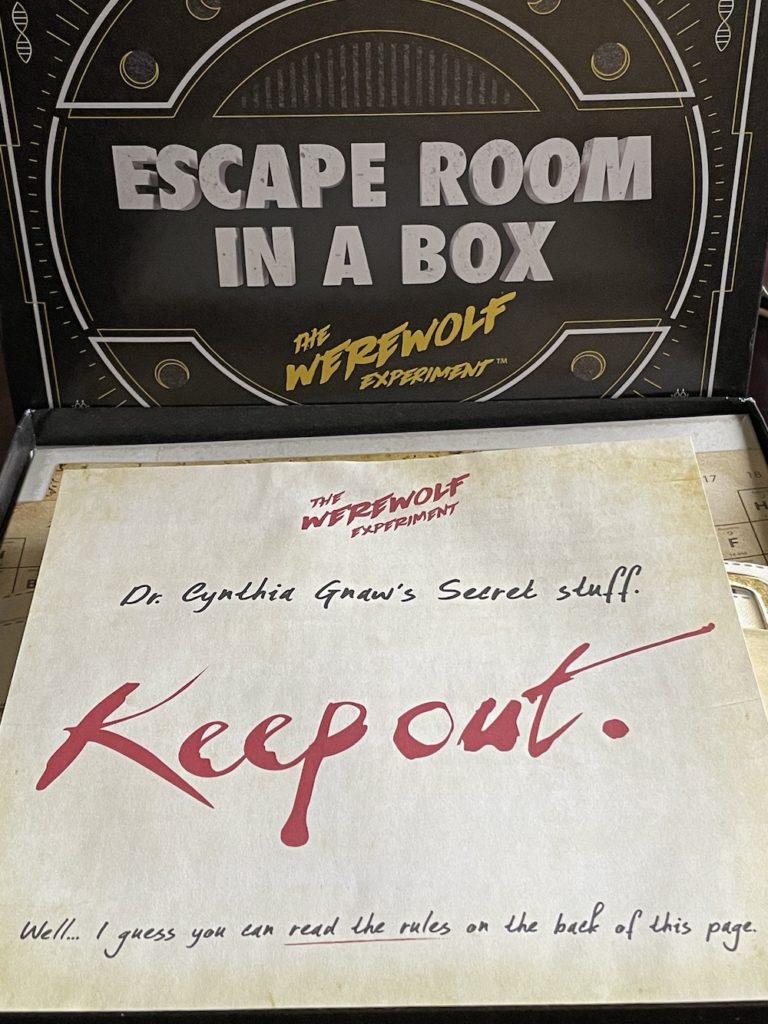 ESCAPE ROOM
IN A BOX
THE
WEREWOLF
EXPERIMENT™
THE
WEREWOLF
EXPERIMENT
17
H
F
Dr. Cynthia Gnaw's Secret stuff.
Keep out.
Well... I guess you can read the rules on the back of this page.